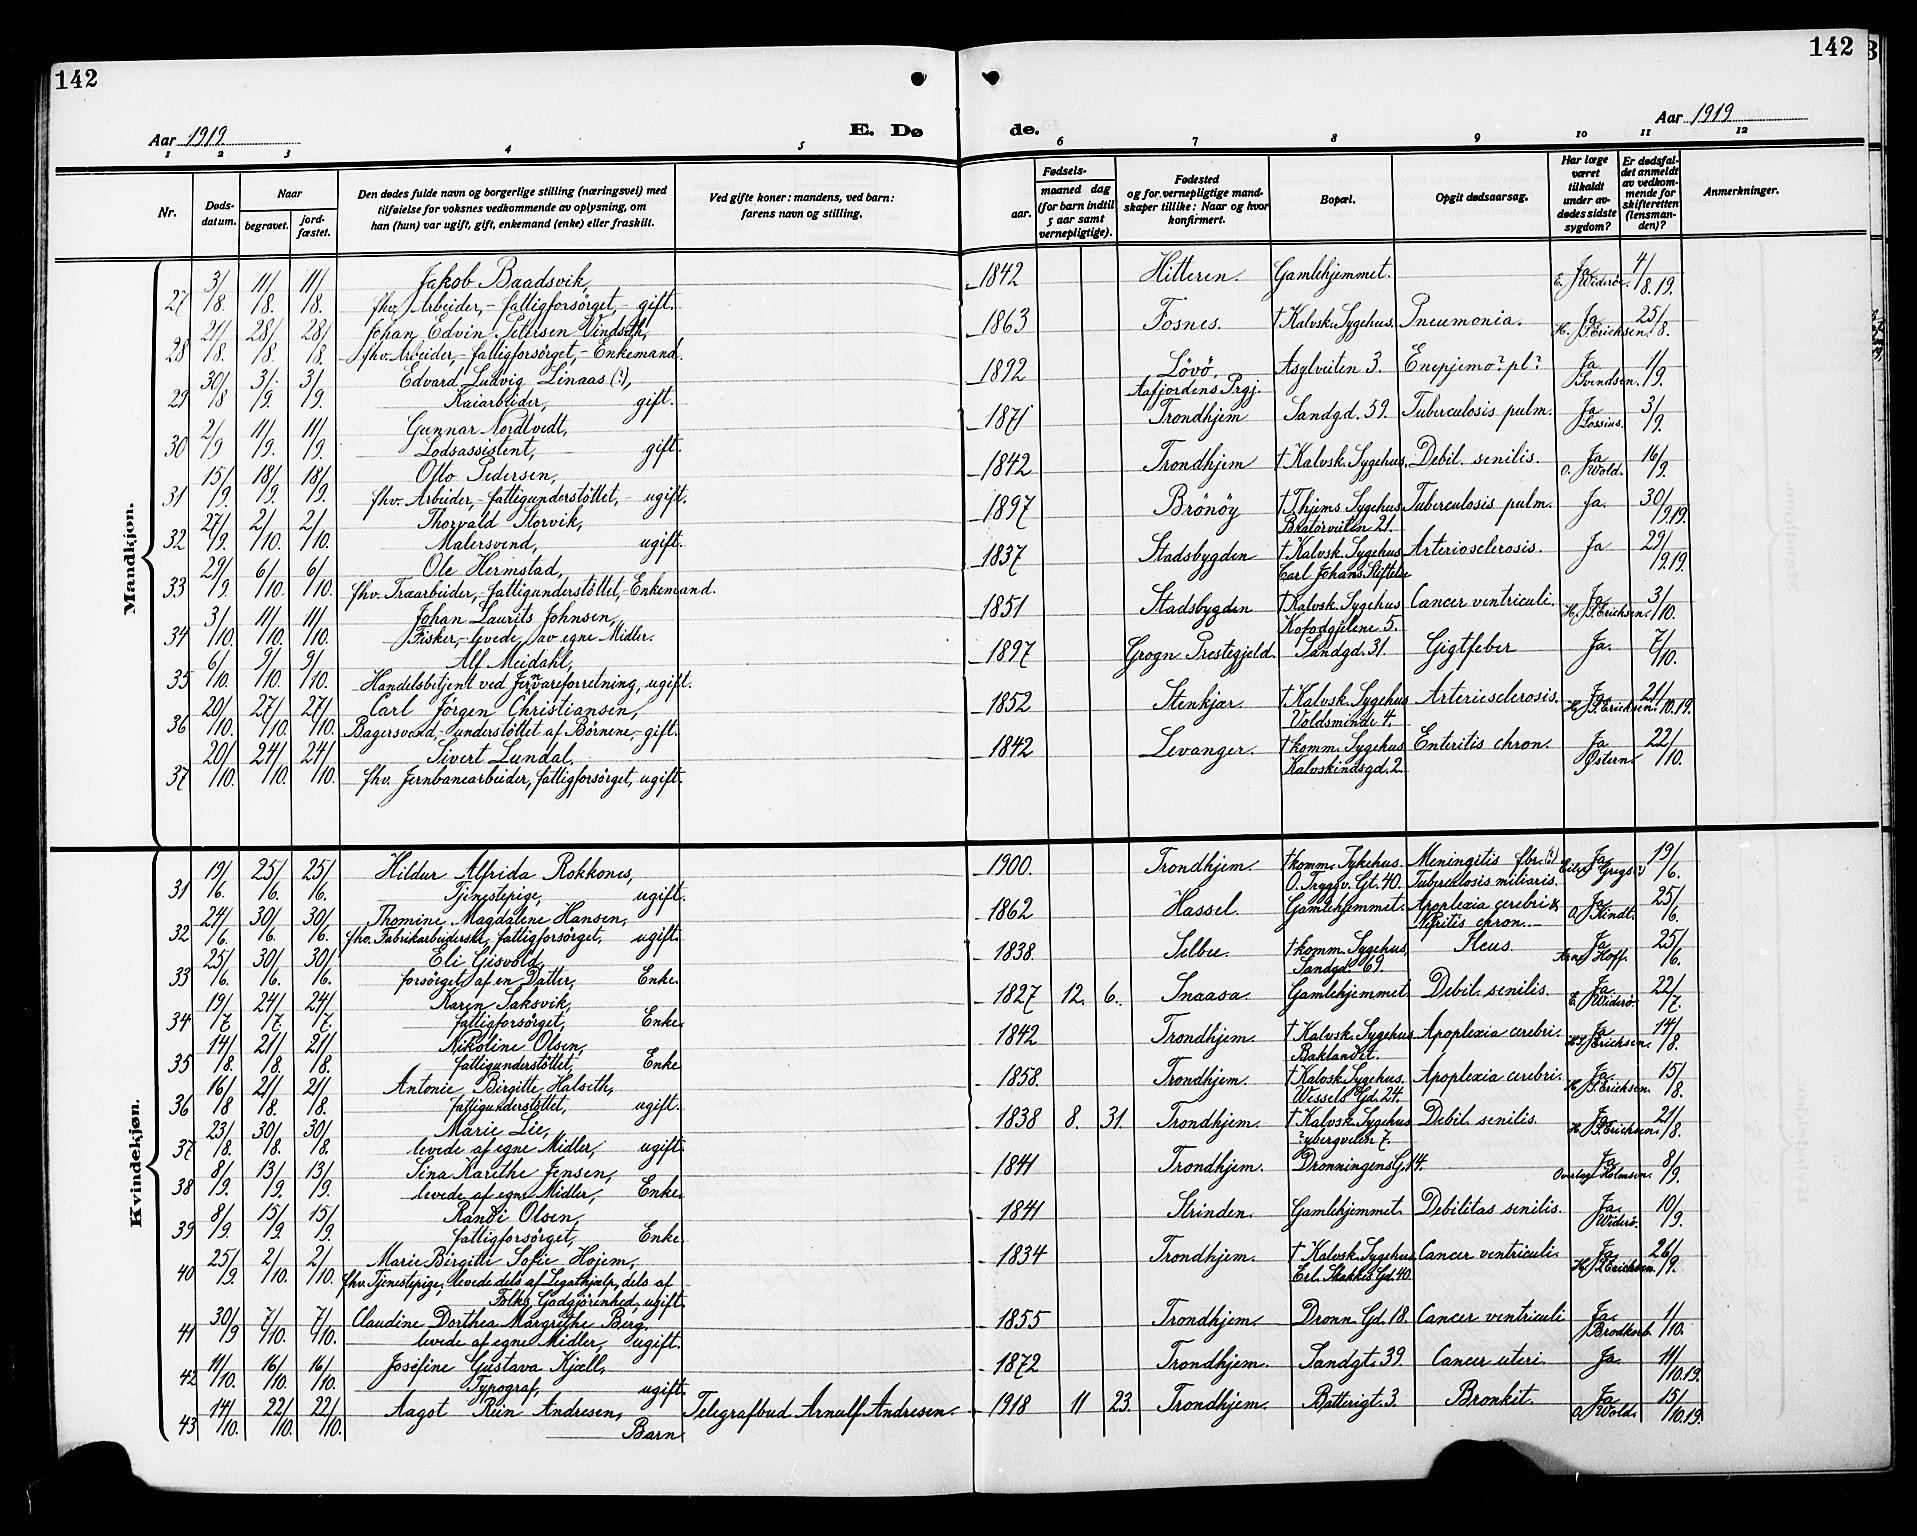 142
142
Aar 1919.
E. Dø
de.
Aar 1919
1 2 3 4 5 6 7 8 9 10 11 12
Nr.
Døds-
datum.
Naar
begravet.
jord-
fæstet.
Den dødes fulde navn og borgerlige stilling (næringsvei) med
tilføielse for voksnes vedkommende av oplysning, om
han (hun) var ugift, gift, enkemand (enke) eller fraskilt.
Ved gifte koner: mandens, ved barn:
farens navn og stilling.
Fødsels-
aar.
maaned dag
(for barn indtil
5 aar samt
vernepligtige).
Fødested
og for vernepligtige mand-
skaper tillike: Naar og hvor
konfirmert.
Bopæl.
Opgit dødsaarsag.
Har læge
været
tilkaldt
under av-
dødes sidste
sygdom?
Er dødsfal-
det anmeldt
av vedkom-
mende for
skifteretten
(lensman-
den)?
Anmerkninger.
Mandkjøn.
27 3/8 11/8. 11/8. Jakob Baadsvik, 1842 Hitteren. Gamlehjemmet. Ja 4/8.19.
fhv. Arbeider, - fattigforsörget, - gift. E. Widerö.
28 21/8. 28/8. 28/8. Johan Edvin Petersen Vindseth, 1863 Fosnes. † Kalvsk. Sygehus. Pneumonia. Ja 25/8.
fhv. Arbeider, - fattigforsörget, - Enkemand. H. J. Erichsen.
29 30/8 3/9. 3/9. Edvard Ludvig Linaas (?), 1892 Lövö, Asylveiten 3. Enepjemo? pl? Ja 1/9.
Kaiarbeider, gift. Aafjordens Prgj. Svendsen.
30 2/9 11/9. 11/9. Gunnar Nordtvedt, 1871 Trondhjem Sandgd. 59. Tuberculosis pulm. Ja 3/9.
Lodsassistent, gift. Lossius.
31 15/9. 18/9. 18/9. Otto Pedersen, 1842 Trondhjem † Kalvsk. Sygehus. Debil. senilis. Ja 16/9.
fhv. Arbeider, - fattigunderstöttet, - ugift. O. Wold.
32 27/9. 2/10. 2/10. Thorvald Storvik, 1897 Brönöy † Thjems Sygehus Tuberculosis pulm. Ja. 30/9.19.
Malersvend, ugift. Bratörveiten 21.
33 29/9. 6/10. 6/10. Ole Hermstad, 1837 Stadsbygden † Kalvsk. Sygehus Arteriosclerosis. Ja 29/9.19.
fhv. Træarbeider, - fattigunderstöttet, - Enkemand. Carl Johans Stiftelse
34 3/10. 11/10. 11/10. Johan Laurits Johnsen, 1851 Stadsbygden † Kalvsk. Sygehus Cancer ventriculi. Ja 3/10.
Fisker, - levede av egne Midler. Kofodgjelene 5. H. J. Erichsen.
35 6/10. 9/10. 9/10. Alf Meidahl, 1897 Grogn Prestegjeld. Sandgd. 31. Gigtfeber Ja. 7/10.
Handelsbetjent ved Jernvareforretning, ugift.
36 20/10. 27/10. 27/10. Carl Jörgen Christiansen, 1852 Stenkjær. † Kalvsk. Sygehus Arteriesclerosis. Ja 21/10.19.
Bagersvend, - understöttet af Börnene, - gift. Voldsminde 4. H. J. Erichsen.
37 20/10. 24/10. 24/10. Sivert Lundal, 1842 Levanger. † komm. Sygehus Enteritis chron. Ja 22/10.
fhv. Jernbanearbeider, fattigforsörget, ugift. Kalvskindsgd. 2. Östern.
Kvindekjøn.
31 19/6. 25/6. 25/6. Hildur Alfrida Rokkones, 1900. Trondhjem. † komm. Sykehus. Meningitis fbr. (?) Ja 19/6.
Tjenestepige, ugift. O. Tryggv. Gt. 40. Tuberculosis miliaris.
32 24/6. 30/6. 30/6. Thomine Magdalene Hansen, 1862 Hassel. Gamlehjemmet. Apoplexia cerebri & Ja 25/6.
fhv. Fabrikarbeiderske, fattigforsörget, ugift. Nefritis chron. O. Kindt.
33 25/6. 30/6. 30/6. Eli Gisvold, 1838. Selbu. † komm. Sygehus, Ileus. Ja 25/6.
forsörget af en Datter, Enke. Sandgd. 69. Arne Hoff.
34 19/7. 24/7. 24/7. Karen Saksvik, 1827 12. 6. Snaasa Gamlehjemmet. Debil. senilis. Ja 22/7.
fattigforsörget, Enke. E. Widerö.
35 14/8. 21/8. 21/8. Nikoline Olsen, 1842 Trondhjem. † Kalvsk. Sygehus Apoplexia cerebri. Ja 14/8.
fattigunderstöttet, Enke Baklandet. H. J. Erichsen.
36 16/8 21/8. 21/8. Antonie Birgitte Halseth, 1858. Trondhjem. † Kalvsk. Sygehus. Apoplexia cerebri. Ja. 15/8.
fattigunderstöttet, ugift. Wessels Gd. 24. H. J. Erichsen.
37 23/8. 30/8. 30/8. Marie Lie, 1838 8. 31. Trondhjem. † Kalvsk. Sygehus Debil. senilis. Ja 21/8.
levede af egne Midler, ugift. ?ybergveien 7. H. J. Erichsen.
38 8/9. 13/9. 13/9. Sina Karethe Jensen, 1841 Trondhjem. Dronningens G. 14. Ja 8/9.
levede af egne Midler, Enke. Overlæge Holmsen.
39 8/9. 15/9. 15/9. Randi Olsen, 1841 Strinden. Gamlehjemmet. Debilitas senilis. Ja. 10/9.
fattigforsörget, Enke. Widerö.
40 25/9. 2/10. 2/10. Marie Birgitte Sofie Hojem, 1834 Trondhjem. † Kalvsk. Sygehus Cancer ventriculi. Ja. 26/9.
fhv. Tjenestepige, levede dels af Legathjælp, dels af Erl. Skakkes Gd. 40. H. J. Erichsen.
Folks Godgjörenhed, ugift.
41 30/9 7/10. 7/10. Claudine Dorthea Margrethe Berg, 1855 Trondhjem. Dronn. Gd. 18. Cancer ventriculi Ja. 1/10.
levede af egne Midler, ugift. Brodkorb.
42 11/10. 16/10. 16/10. Josefine Gustava Kjell, 1872 Trondhjem. Sandgt. 39. Cancer uteri. Ja. 11/10.19.
Typograf, ugift.
43 14/10. 22/10. 22/10. Aagot Rein Andresen, Telegrafbud Arnulf Andresen. 1918 11 23. Trondhjem. Batterigt. 3. Bronkit. Ja 15/10.19.
Barn. O. Wold.